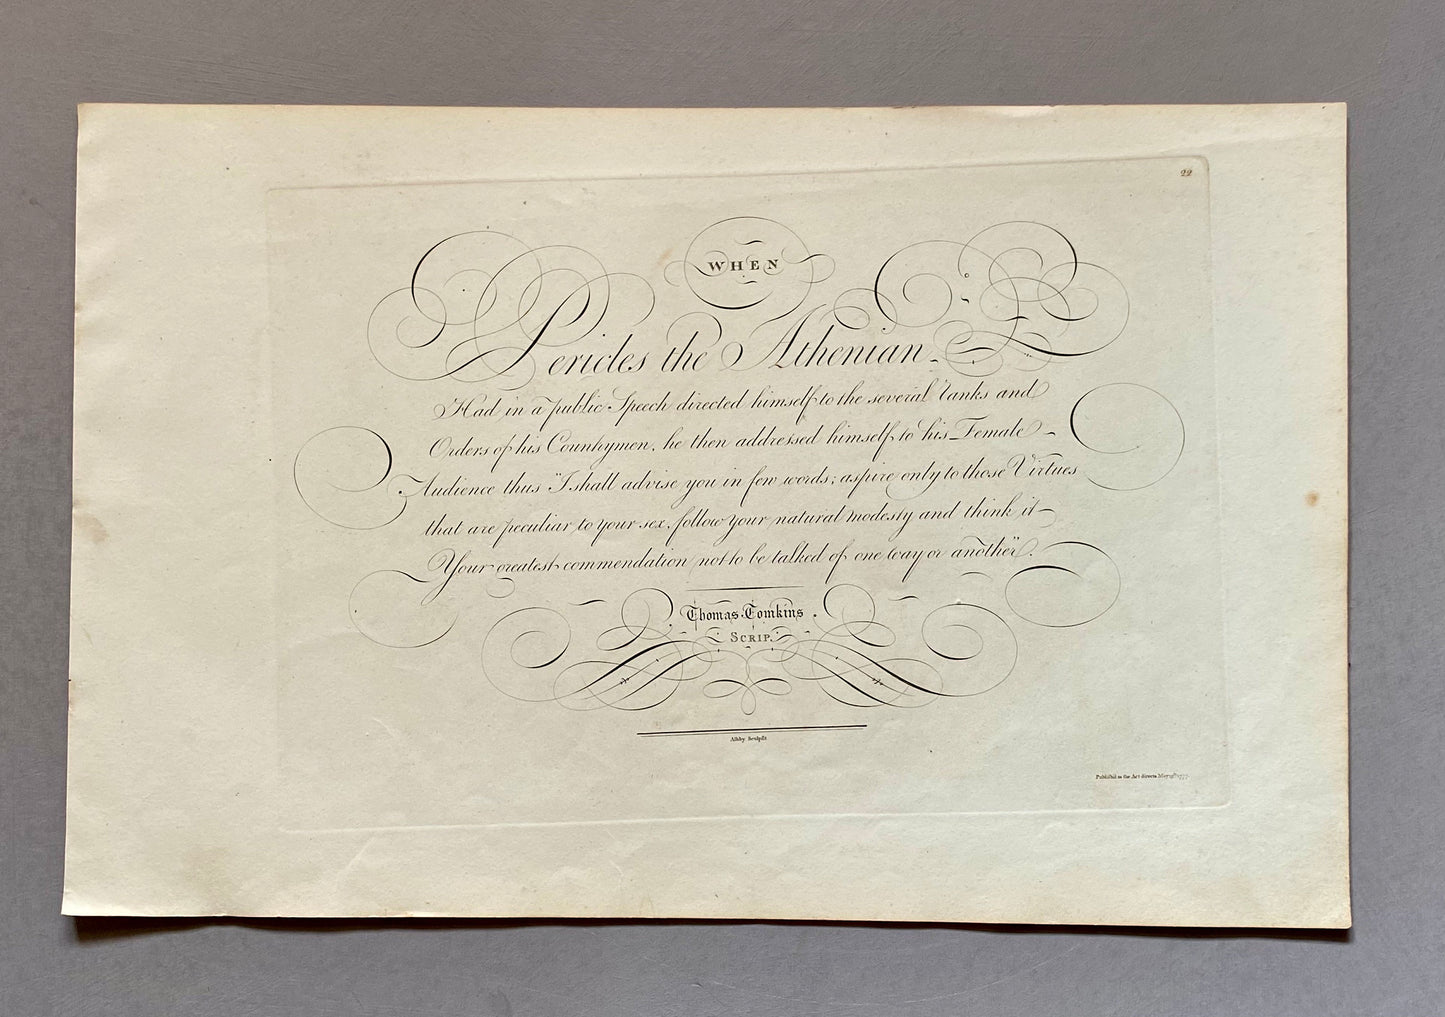 22
WHEN
Pericles the Athenian
Had in a public Speech directed himself to the several Ranks and
Orders of his Countrymen, he then addressed himself to his Female
Audience thus "I shall advise you in few words; aspire only to those Virtues
that are peculiar to your sex, follow your natural modesty and think it
Your greatest commendation not to be talked of one way or another".
Thomas Tomkins.
SCRIP.
Ashby Sculpsit
Publish'd as the Act directs May 1777